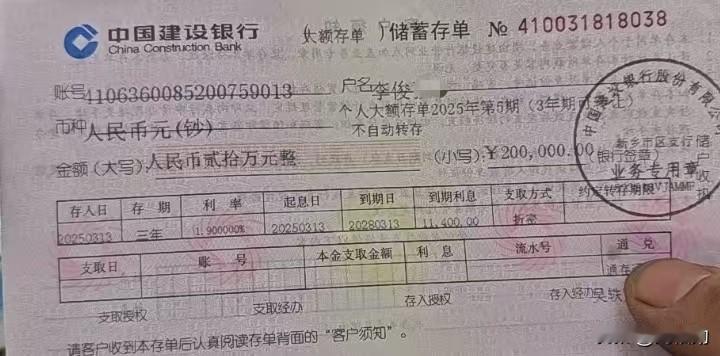 中国建设银行 大额存单 储蓄存单 № 410031818038
China Construction Bank
账号 4106360085200759013 户名 李俊
币种 人民币元(钞) 个人大额存单2025年第5期(3年期
不自动转存
金额(大写) 人民币贰拾万元整 (小写) ¥200,000.00 (银行签章)
中国建设银行股份有限公
新乡市区支行
业务专用章
储户收执
存入日 存期 利率 起息日 到期日 到期利息 支取方式 约定转存期限
20250313 三年 1.900000% 20250313 20280313 11,400.00 折密
支取日 账号 本金支取金额 利息 流水号 通兑
通存
支取授权 支取经办 存入授权 存入经办 吴轶
请客户收到本存单后认真阅读存单背面的“客户须知”。